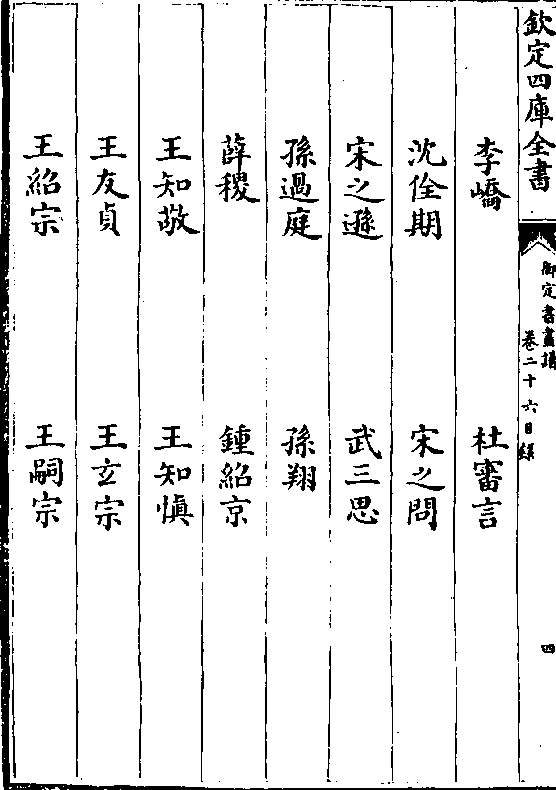 欽定四庫全書
御定書畫譜
卷二十六目録
四
李嶠
杜審言
沈佺期
宋之問
宋之遜
武三思
孫過庭
孫翔
薛稷
鍾紹京
王知敬
王知慎
王友貞
王玄宗
王紹宗
王嗣宗